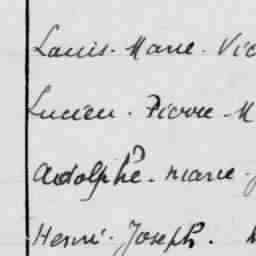 Louis. Marie. Vic
Lucien. Pierre. M
Adolphe. Marie.
Henri. Joseph.